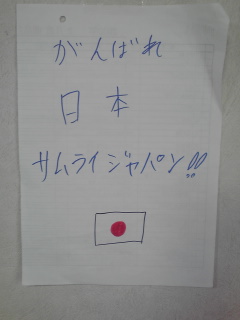 がんばれ
日本
サムライジャパン!!